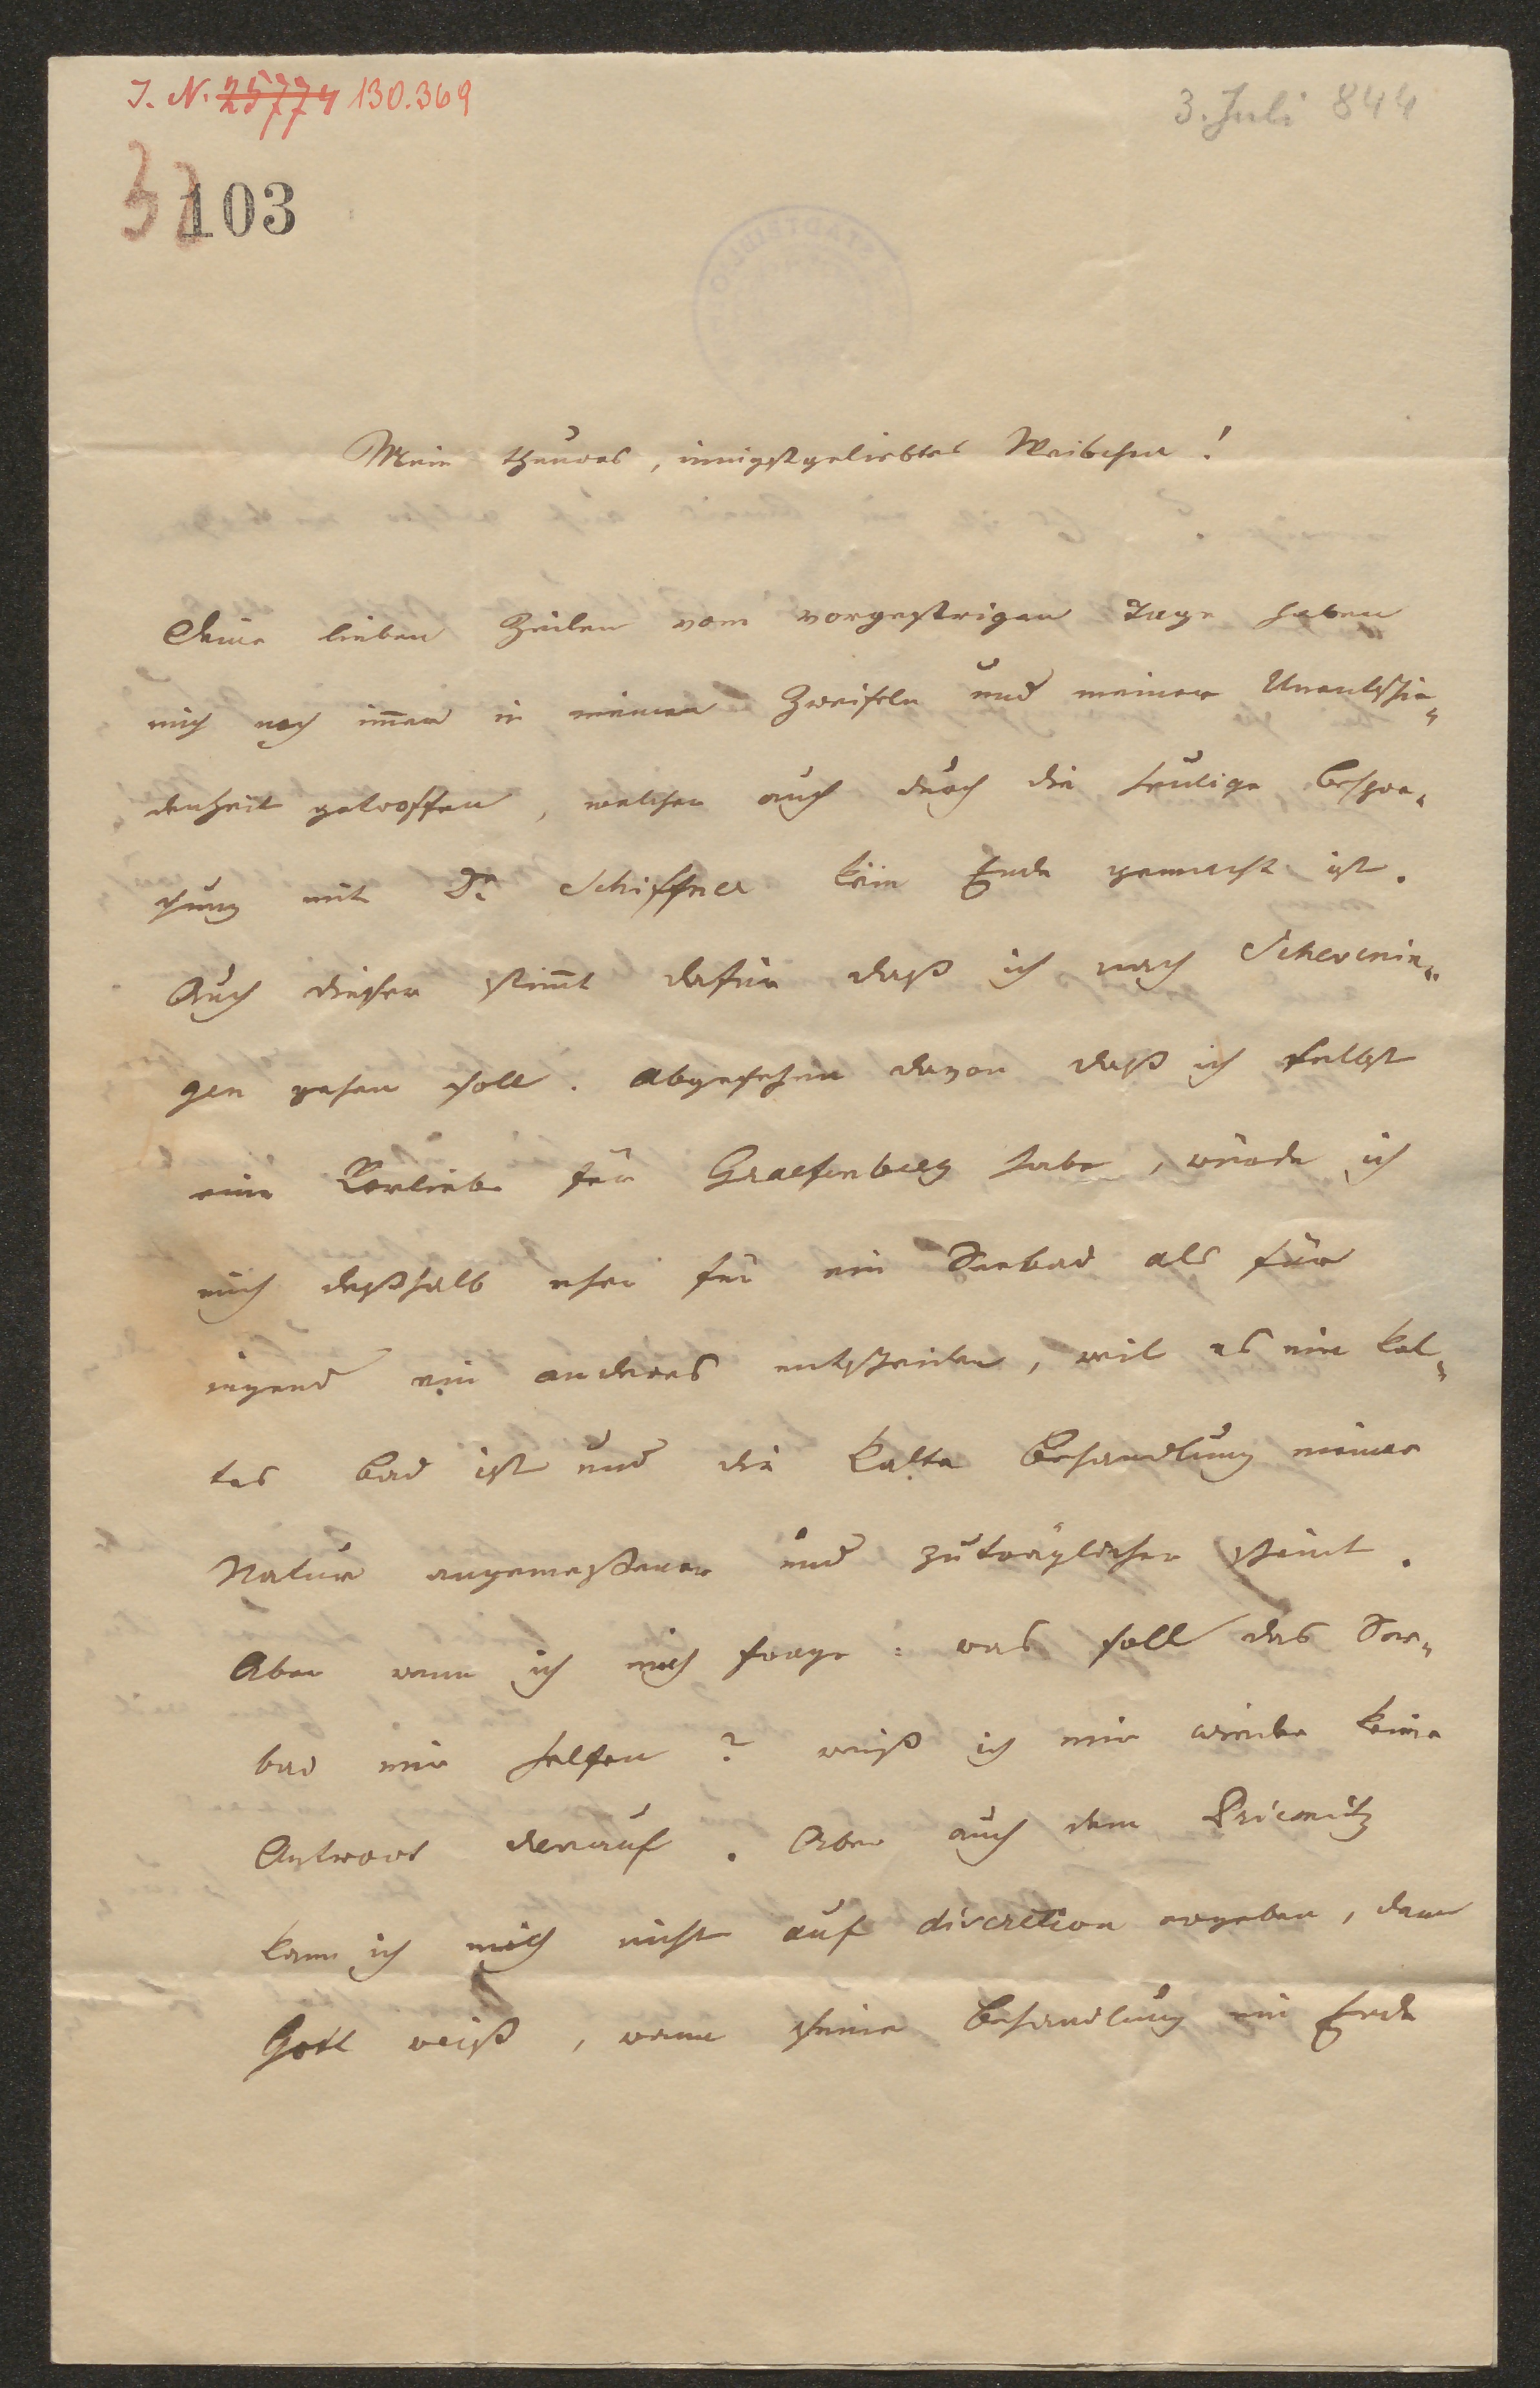 J. N. 25774 130.369
3. Juli 844
103
Mein theures, innigstgeliebtes Weibchen!
Deine lieben Zeilen vom vorgestrigen Tage haben
mich noch im̅er in meinen Zweifeln und meiner Unentschie„
denheit getroffen, welcher auch durch die heutige Bespre„
chung mit Dr. Schiffner kein Ende gemacht ist.
Auch dieser stim̅t dafür daß ich nach Schevenin„
gen gehen soll. Abgesehen davon daß ich selbst
eine Vorliebe für Graefenberg habe, würde ich
mich deßhalb eher für ein Seebad als für
irgend ein anderes entscheiden, weil es ein kal„
tes Bad ist und die kalte Behandlung meiner
Natur angemeßener und zuträglicher scheint.
Aber wenn ich mich frage: was soll das See„
bad mir helfen? weiß ich mir wieder keine
Antwort darauf. Aber auch dem Priesnitz
kann ich mich nicht auf discretion ergeben, denn
Gott weiß, wann seine Behandlung ein Ende